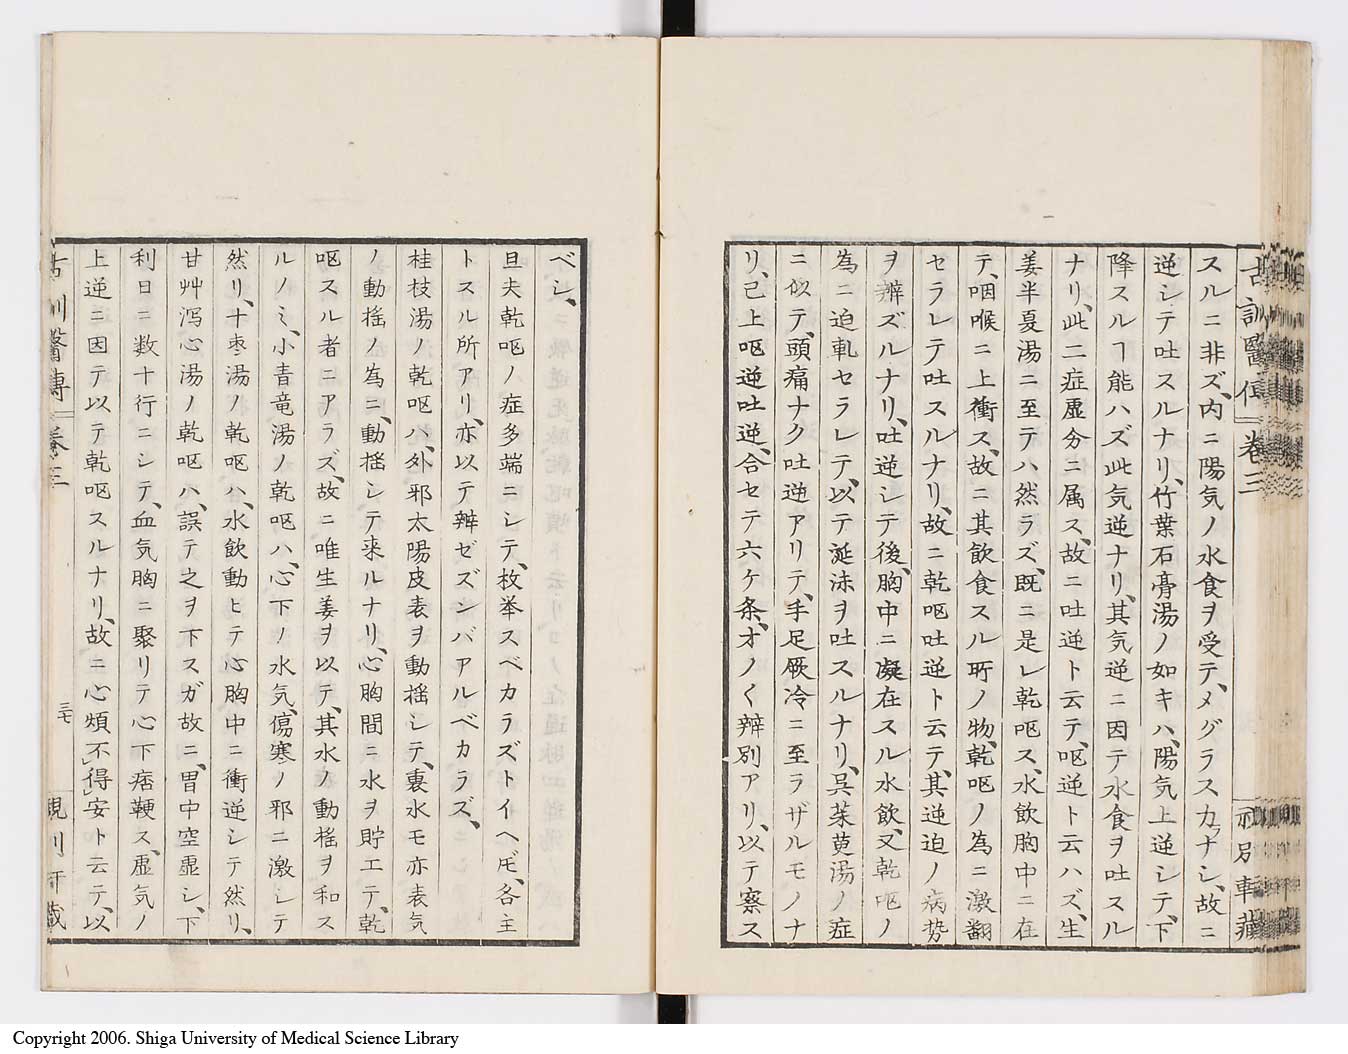 古訓醫傳 卷三
スルニ非ズ、内ニ陽気ノ水食ヲ受テ、メグラス力ナシ、故ニ
逆シテ吐スルナリ、竹葉石膏湯ノ如キハ、陽気上逆シテ、下
降スルヿ能ハズ此気逆ナリ、其気逆ニ因テ水食ヲ吐スル
ナリ、此二症虚分ニ属ス、故ニ吐逆ト云テ、呕逆ト云ハズ、生
姜半夏湯ニ至テハ然ラズ、既ニ是レ乾呕ス、水飲胸中ニ在
テ、咽喉ニ上衝ス、故ニ其飲食スル所ノ物、乾呕ノ為ニ激翻
セラレテ吐スルナリ、故ニ乾呕吐逆ト云テ、其逆迫ノ病势
ヲ辨ズルナリ、吐逆シテ後、胸中ニ凝在スル水飲、又乾呕ノ
為ニ迫軋セラレテ、以テ涎沫ヲ吐スルナリ、呉茱萸湯ノ症
ニ似テ、頭痛ナク吐逆アリテ、手足厥冷ニ至ラザルモノナ
リ、已上呕逆吐逆、合セテ六ケ条、オノ〱辨別アリ、以テ察ス
ベシ、
旦夫乾呕ノ症多端ニシテ、枚挙スベカラズトイヘ𪜈、各主
トスル所アリ、亦以テ辨ゼズンバアルベカラズ、
桂枝湯ノ乾呕ハ、外邪太陽皮表ヲ動揺シテ、裏水モ亦表気
ノ動揺ノ為ニ、動揺シテ来ルナリ、心胸間ニ水ヲ貯エテ、乾
呕スル者ニアラズ、故ニ唯生姜ヲ以テ、其水ノ動揺ヲ和ス
ルノミ、小青竜湯ノ乾呕ハ、心下ノ水気、傷寒ノ邪ニ激シテ
然リ、十枣湯ノ乾呕ハ、水飲動ヒテ心胸中ニ衝逆シテ然リ、
甘艸瀉心湯ノ乾呕ハ、誤テ之ヲ下スガ故ニ、胃中空虚シ、下
利日ニ数十行ニシテ、血気胸ニ聚リテ心下痞鞕ス、虚気ノ
上逆ニ因テ以テ乾呕スルナリ、故ニ心煩不得安ト云テ、以
古訓醫傳 卷三 三七
Copyright 2006. Shiga University of Medical Science Library